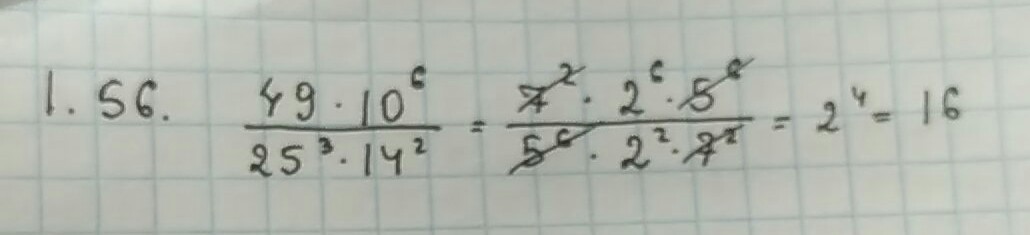 1.56. \frac{49 \cdot 10^6}{25^3 \cdot 14^2} = \frac{7^2 \cdot 2^6 \cdot 5^6}{5^6 \cdot 2^2 \cdot 7^2} = 2^4 = 16